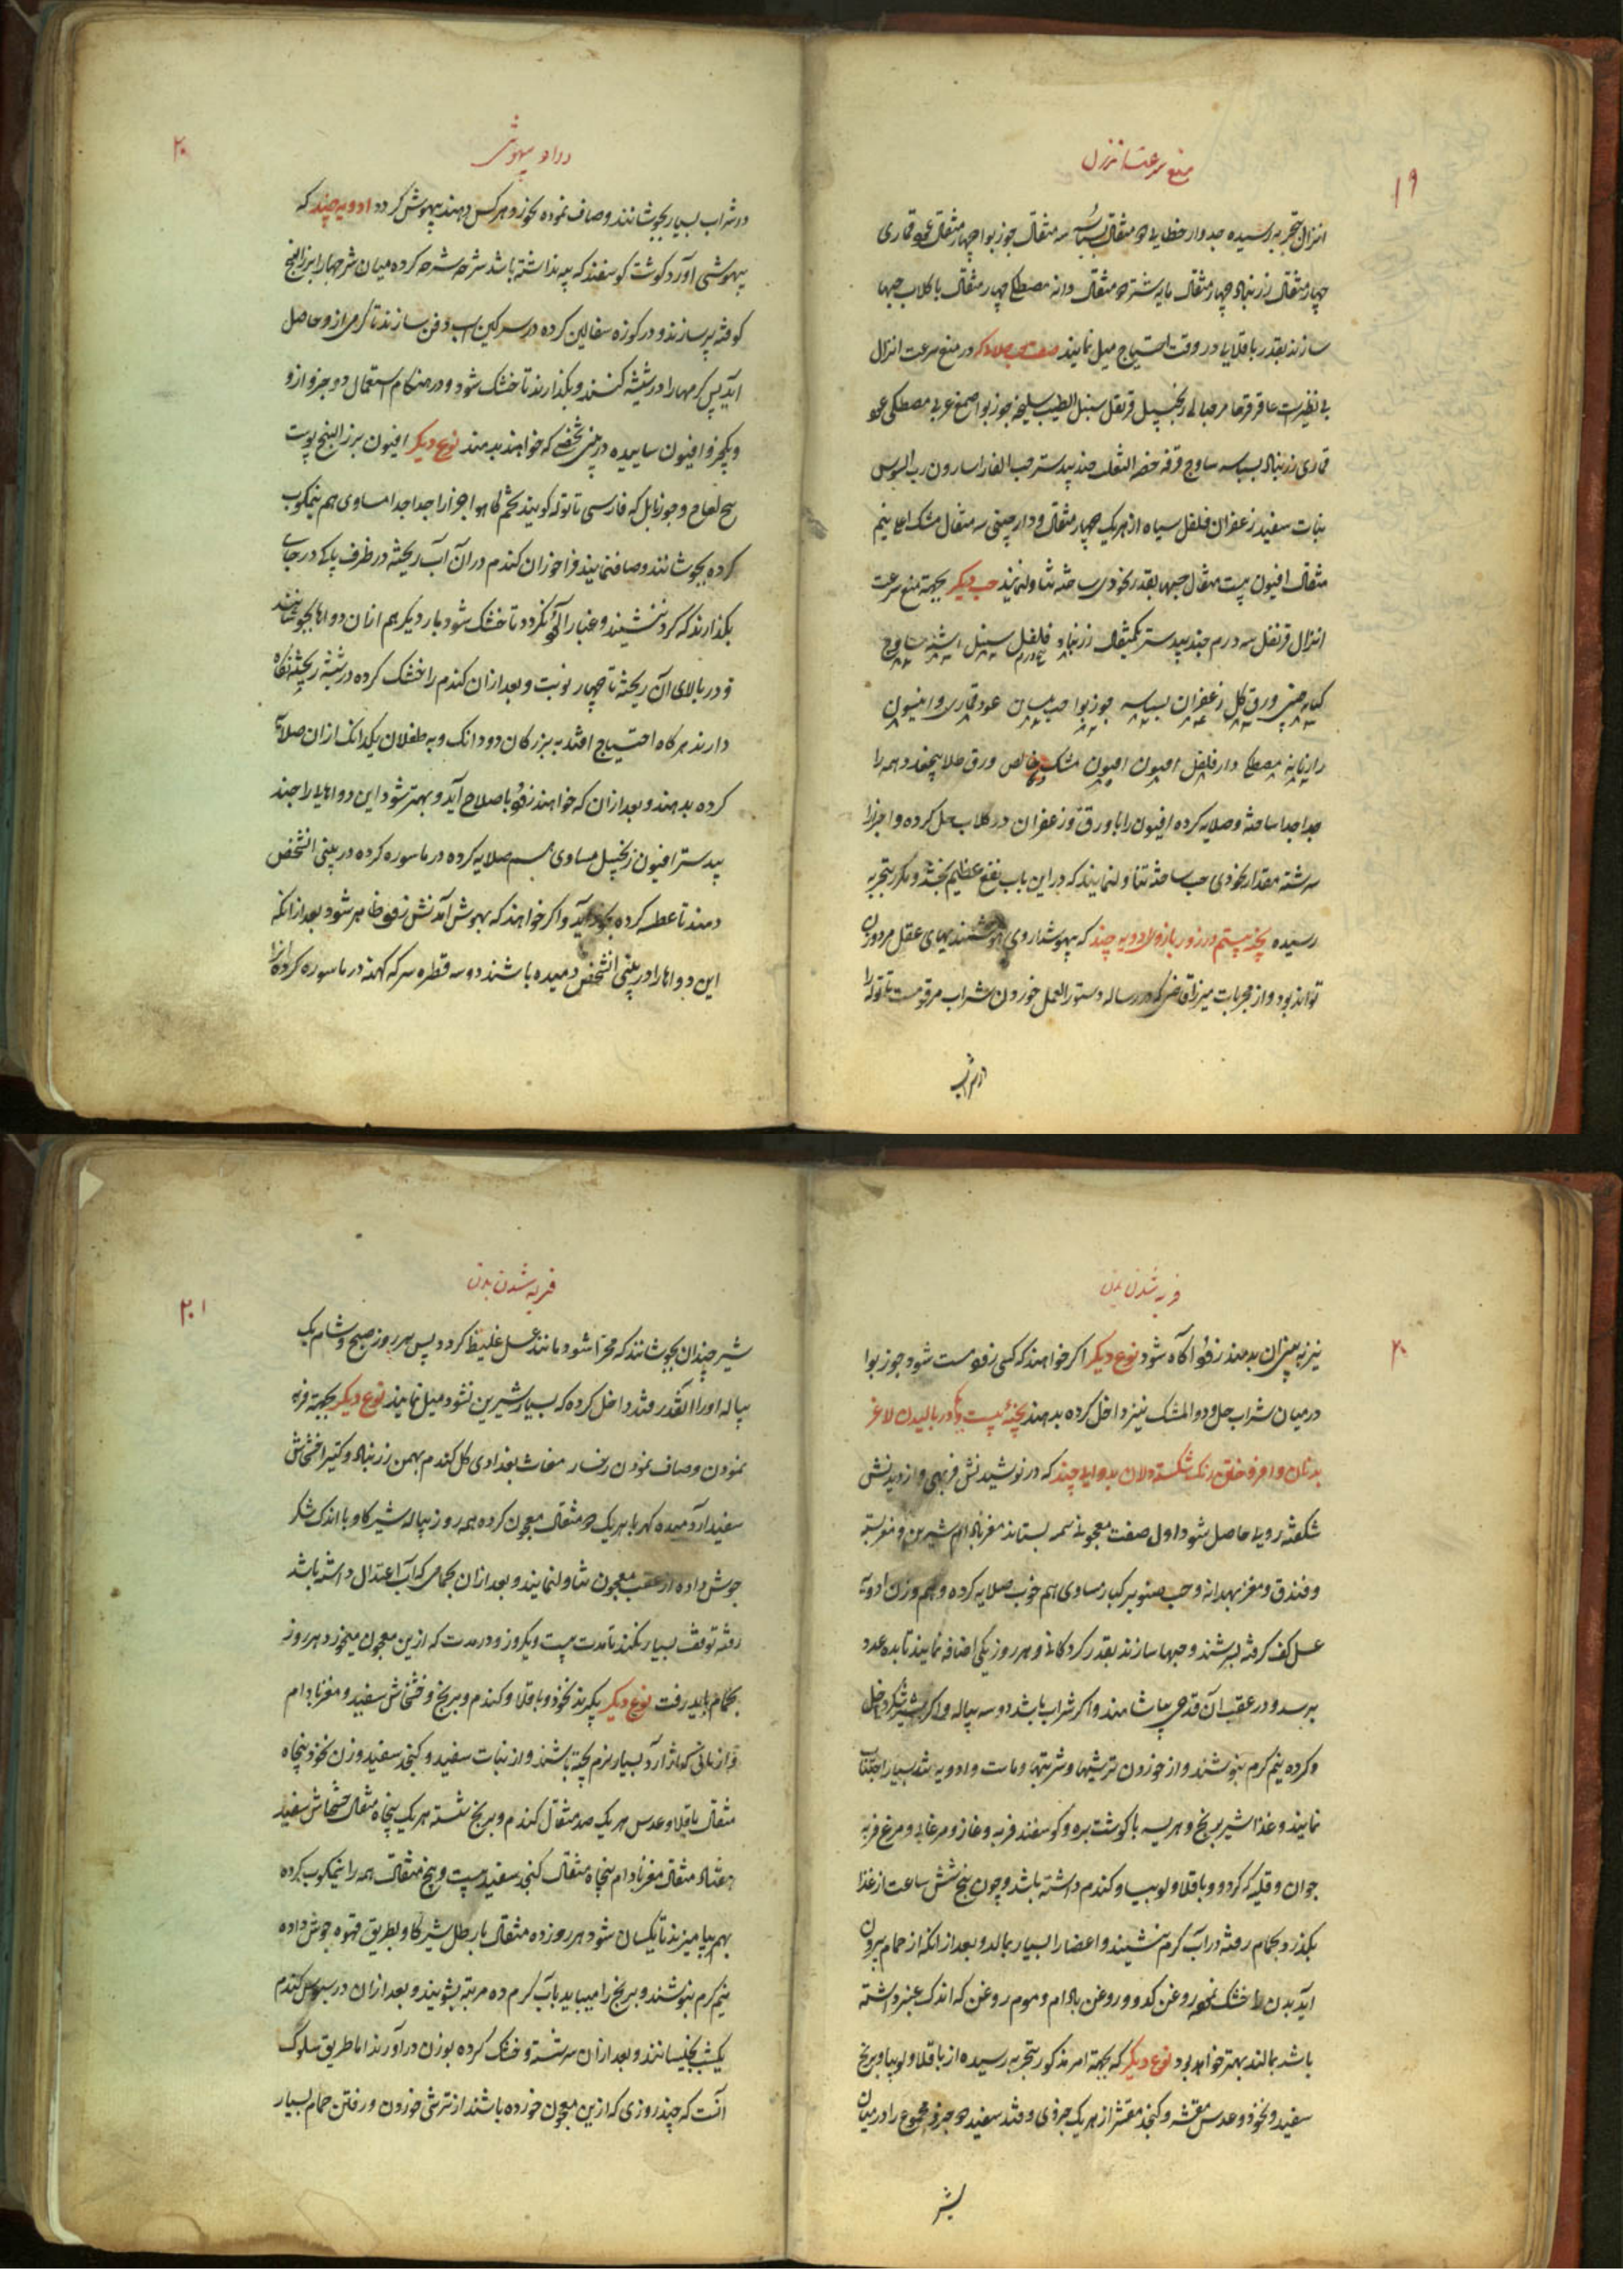 ۱۹
منع سرعت انزال
انزال بتجربه رسیده جدوار خطایی دو مثقال بسباسه سه مثقال جوز بوا چهار مثقال عود قماری
چهار مثقال زرنباد چهار مثقال مایه شتر دو مثقال دانه مصطکی چهار مثقال با کلاب حبها
سازند بقدر باقلایی در وقت احتیاج میل نمایند صفت حب جلا که در منع سرعت انزال
بی نظیر است عاقرقرحا مرجانی زنجبیل قرنفل سنبل الطیب سلیخه جوز بوا صمغ عربی مصطکی عود
قماری زرنباد بسباسه ساوج قرفه خصه الثعلب جند بیدستر حب الغار اسارون رب السوس
نبات سفید زعفران فلفل سیاه از هر یک چهار مثقال و دارچینی سه مثقال مشک اعلا نیم
مثقال افیون بیست مثقال حبها بقدر نخودی ساخته تناول نمایند حب دیگر بجهة منع سرعت
انزال قرنفل سه درم جند بیدستر یکمثقال زرنباد فلفل سنبل اشنه ساوج
کبابه چینی ورق کل زعفران بسباسه جوز بوا حب بلسان عود قماری و انیسون
رازیانه مصطکی دار فلفل افیون افیون مشک خالص ورق طلا بیخفد و همه را
جدا جدا ساخته و صلایه کرده افیون را با ورق و زعفران در کلاب حل کرده و اجزا را
سرشته مقدار نخودی حب ساخته تناول نمایند که در این باب نفع عظیم بخشد و مکرر بتجربه
رسیده پخنه بیستم در زور بازوی ادویه چند که بیهوشداروی هوشمندیهای عقل مردوزن
تواند بود و از مجربات میرزا قاضی که در رساله دستور العمل خوردن شراب مرقومست تاتوله را
در شراب
۲۰
در ادویه بیهوشی
در شراب بسیار بجوشانند و صاف نموده بخورد هر کس دهند بیهوش کردد ادویه چند که
بیهوشی آورد کوشت کوسفند که پیه نداشته باشد شرحه شرحه کرده میان شرحها را بزر البنج
کوفته پر سازند و در کوزه سفالین کرده در سرکین اسب دفن سازند تا کرمی از و حاصل
آید پس کرمها را در شیشه کنند و بگذارند تا خشک شود و در هنکام استعمال دو جزو از و
و یکجزو افیون ساییده در بینی شخصی که خواهند بدمند نوع دیگر افیون بزر البنج پوست
بیخ لفاح و جوز ماثل که فارسی تاتوله کویند تخم کاهو اجزا را جدا جدا مساوی هم نیمکوب
کرده بجوشانند و صاف نمایند فراخوران کندم در ان آب ریخته در ظرف پاکی در جایی
بگذارند که کرد ننشیند و غبار آلود نکردد تا خشک شود بار دیگر هم ازان دواها بجوشانند
و در بالای آن ریخته تا چهار نوبت و بعد ازان کندم را خشک کرده در شیشه ریخته نکاه
دارند هر کاه احتیاج افتد به بزرکان دو دانک و به طفلان یکدانک از ان صلایه
کرده بدهند و بعد ازان که خواهند زود باصلاح آید و بهتر شود این دواهای را جند
بیدستر افیون زنجبیل مساوی هم صلایه کرده در ماسوره کرده در بینی انشخص
دمند تا عطسه کرده بخود آید و اکر خواهند که بهوش آمدنش زود ظاهر شود بعد از انکه
این دواها را در بینی انشخص دمیده باشند دو سه قطره سرکه کهنه در ماسوره کرده انرا
۲۰
فربه شدن بدن
نیز به بینی ان بدمند زود آکاه شود نوع دیگر اکر خواهند که کسی زود مست شود جوز بوا
در میان شراب حل و دوا المشک نیز داخل کرده بدهند پخنه بیست و یکم در بالیدن لاغر
بدنان و افروختن رنک شکسته دلان بدوایی چند که در نوشیدنش فربهی و از دیدنش
شکفته رویی حاصل شود اول صفت معجونی سمنه بستانند مغز بادام شیرین و مغز پسته
و فندق و مغز بهدانه و حب صنوبر کبار مساوی هم خوب صلایه کرده و هم وزن ادویه
عسل کف کرفته بسرشند و حبها سازند بقدر کردکانی و هر روز یکی اضافه نمایند تا بده عدد
برسد و در عقب آن قدحی بیاشامند و اکر شراب باشد دو سه پیاله و اکر شیر شکر داخل
کرده نیم کرم بنوشند و از خوردن ترشیها و شربتها و ماست و ادویه تند بسیار اجتناب
نمایند و غذا شیر برنج و هریسه با کوشت بره و کوسفند فربه و غاز و مرغابی و مرغ فربه
جوان و قلیه که کردو و باقلا و لوبیا و کندم داشته باشد و چون پنج شش ساعت از غذا
بگذرد بحمام رفته در آب کرم بنشیند و اعضا را بسیار بمالد و بعد از انکه از حمام بیرون
آید بدن را خشک نموده روغن کدو و روغن بادام و موم روغن که اندک عنبر داشته
باشد بمالند بهتر خواهد بود نوع دیگر که بجهة امر مذکور بتجربه رسیده از باقلا و لوبیا و برنج
سفید و نخود و عدس مقشر و کنجد مقشر از هر یک جزوی و قند سفید دو جزو مجموع را در میان
شیر
۲۰۱
فربه شدن بدن
شیر چندان بجوشانند که مهرا شود و مانند عسل غلیظ کردد پس هر روز صبح و شام یک
پیاله او را آنقدر قند داخل کرده که بسیار شیرین نشود میل نمایند نوع دیگر بجهة فربه
نمودن و صاف نمودن رخسار مغاث بغدادی کل کندم بهمن زرنباد و کتیرا خشخاش
سفید آرد میده کهربا هر یک دو مثقال معجون کرده همه روز پیاله شیر کاو با اندک شکر
جوش داده از عقب معجون تناول نمایند و بعد ازان بحمامی که آب اعتدال داشته باشد
رفته توقف بسیار نکنند تا مدت بیست و یکروز و در مدت که ازین معجون میخورد هر روز
بحمام باید رفت نوع دیگر بکیرند نخود و باقلا و کندم و برنج و خشخاش سفید و مغز بادام
و از نانی که از آرد بسیار نرم پخته باشند و از نبات سفید و کنجد سفید وزن نخود پنجاه
مثقال باقلا و عدس هر یک صد مثقال کندم و برنج شسته هر یک پنجاه مثقال خشخاش سفید
هفتاد مثقال مغز بادام پنجاه مثقال کنجد سفید بیست و پنج مثقال همه را نیمکوب کرده
بهم بیامیزند تا یکسان شود هر روز ده مثقال با رطل شیر کاو بطریق قهوه جوش داده
نیم کرم بنوشند و برنج را میباید باب کرم ده مرتبه بشویند و بعد ازان در سبوس کندم
یکشب بخیسانند و بعد ازان شسته و خشک کرده بوزن در آورند اما طریق سلوک
آنست که چند روزی که ازین معجون خورده باشند از ترشی خوردن و رفتن حمام بسیار